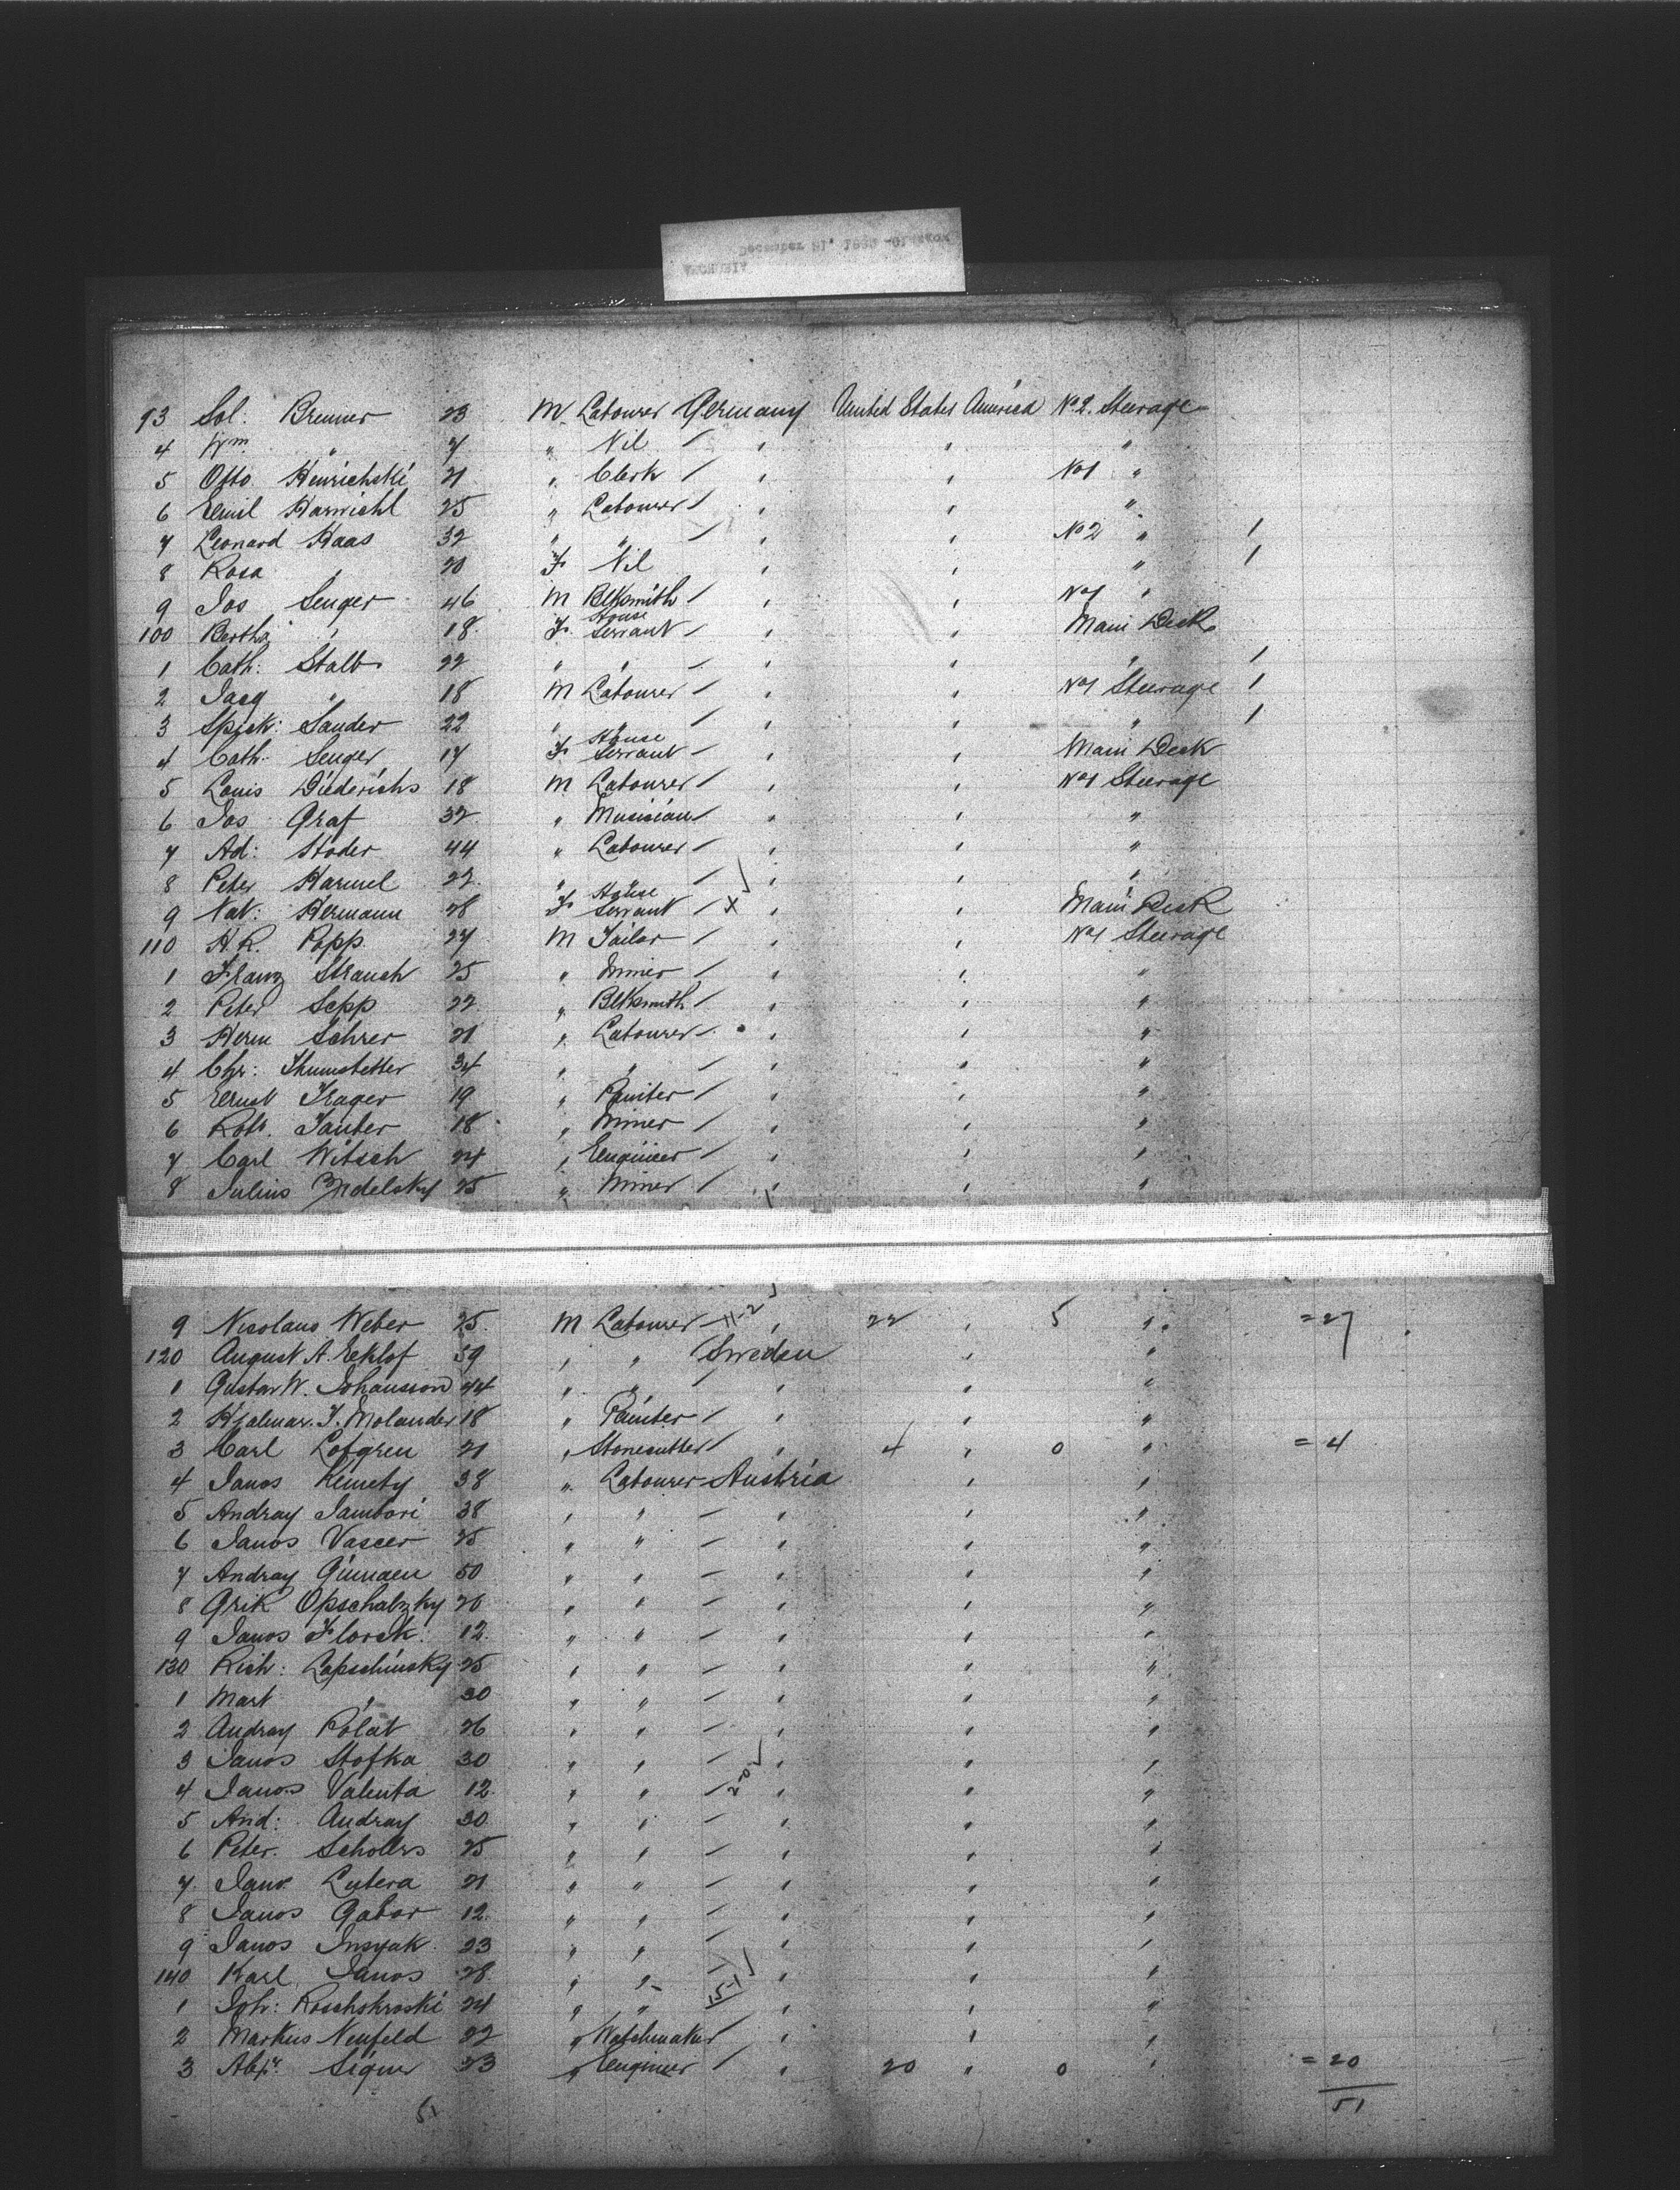 December 31, 1883
93 Sol. Bremer 23 M Labourer Germany United States America No 2. Steerage
4 Wm " 7 " Nil / " " "
5 Otto Hinrichski 21 " Clerk / " " No 1 "
6 Emil Harwichl 25 " Labourer / " " "
7 Leonard Haas 32 " " / " " No 2 " 1
8 Rosa " 20 F Nil " " " 1
9 Jos Senger 46 M Blksmith / " " No 1 "
100 Bertha " 18 F House Servant / " " Main Deck
1 Cath: Stalb 22 " " / " " " 1
2 Jacq " 18 M Labourer / " " No 1 Steerage 1
3 Sander 22 " " / " " " 1
4 Cath: Senger 17 F House Servant / " " Main Deck
5 Louis Diederichs 18 M Labourer / " " No 1 Steerage
6 Jos Graf 32 " Musician / " " "
7 Ad: Stoder 44 " Labourer / " " "
8 Peter Harmel 22 " " / " " "
9 Nat: Hermann 28 F House Servant / X " " Main Deck
110 H.R. Popp 27 M Tailor / " " No 1 Steerage
1 Franz Strauch 25 " Miner / " " "
2 Peter Sepp 22 " Blksmith / " " "
3 Herm Schrer 21 " Labourer / " " "
4 Chr: Thumstetter 34 " " / " " "
5 Ernst Trager 19 " Painter / " " "
6 Rob. Tauber 18 " Miner / " " "
7 Carl Witsch 24 " Engineer / " " "
8 Julius 25 " Miner / " " "
9 Nicolaus Weber 25 M Labourer / 11-2 " 22 " 5 " = 27
120 August A. Eklof 39 " " Sweden " "
1 Gustav W. Johansson 44 " " / " " "
2 Hjalmar. T. Molander 18 " Painter / " " "
3 Carl Lofgren 21 " Stonecutter / " 4 " 0 " = 4
4 Janos Kemety 38 " Labourer Austria " "
5 Andray Jambori 38 " " / " " "
6 Janos Vaseer 25 " " / " " "
7 Andray 50 " " / " " "
8 Grik Opschalzky 26 " " / " " "
9 Janos Florek 12 " " / " " "
130 Rich: Lapschinsky 25 " " / " " "
1 Mart " 30 " " / " " "
2 Andray Polat 26 " " / " " "
3 Janos Stofka 30 " " / " " "
4 Janos Valenta 12 " " / " " "
5 And: Andray 30 " " / " " "
6 Peter Schollrs 25 " " / " " "
7 Janos Lutera 21 " " / " " "
8 Janos Gabor 12 " " / " " "
9 Janos 23 " " / " " "
140 Karl Janos 28 " " / " " "
1 Joh: 24 " " 15-1 " " "
2 Markus Neufeld 22 " Watchmaker / " " "
3 Alexr. Siguer 23 " Engineer / " 20 " 0 " = 20
51 51